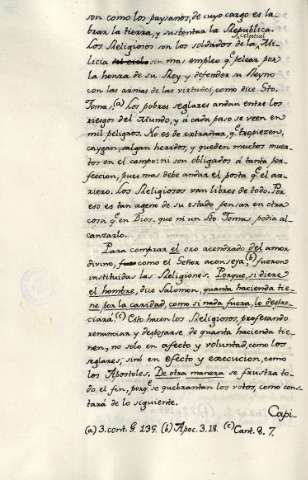 son como los paysanos, de cuyo cargo es la-
brar la tierra, y sustentar la Republica.
Los Religiosos son los soldados de la Mi-
licia celestial sin mas empleo q.e pelear por
la honra de su Rey y defender su Reyno
con las armas de las virtudes, como dice Sto.
Toma. (a) Los pobres seglares andan entre los
riesgos del Mundo, y a cada paso se veen en
mil peligros. No es de extrañar, q.e tropiesen,
caygan, salgan heridos, y queden muchos muer-
tos en el campo: ni son obligados à tanta per-
feccion, pues mas debe andar el posta q.e el ar-
riero. Los Religiosos van libres de todo. Por
eso es tan ageno de su estado pensar en otra
cosa q.e en Dios, que ni un Sto Toma podia al-
canzarlo.
Para comprar el oro acendrado del amor
divino, como el Señor aconseja, (b) fueron
instituidas las Religiones. Porque, si diere
el hombre, dice Salomon, quanta hacienda tie-
ne por la caridad, como si nada fuera, lo despre-
ciará. (c) Esto hacen los Religiosos, profesando
renunciar y despojarse de quanta hacienda tie-
nen, no solo en afecto y voluntad, como los
seglares; sinó en efecto y execucion, como
los Apostoles. De otra manera se frustra to-
do el fin, porq.e se quebrantan los votos, como cons-
tará de lo siguiente.
Capi-
(a) 3. cont. G. 135. (b) Apoc. 3. 18. (c) Cant. 8. 7.